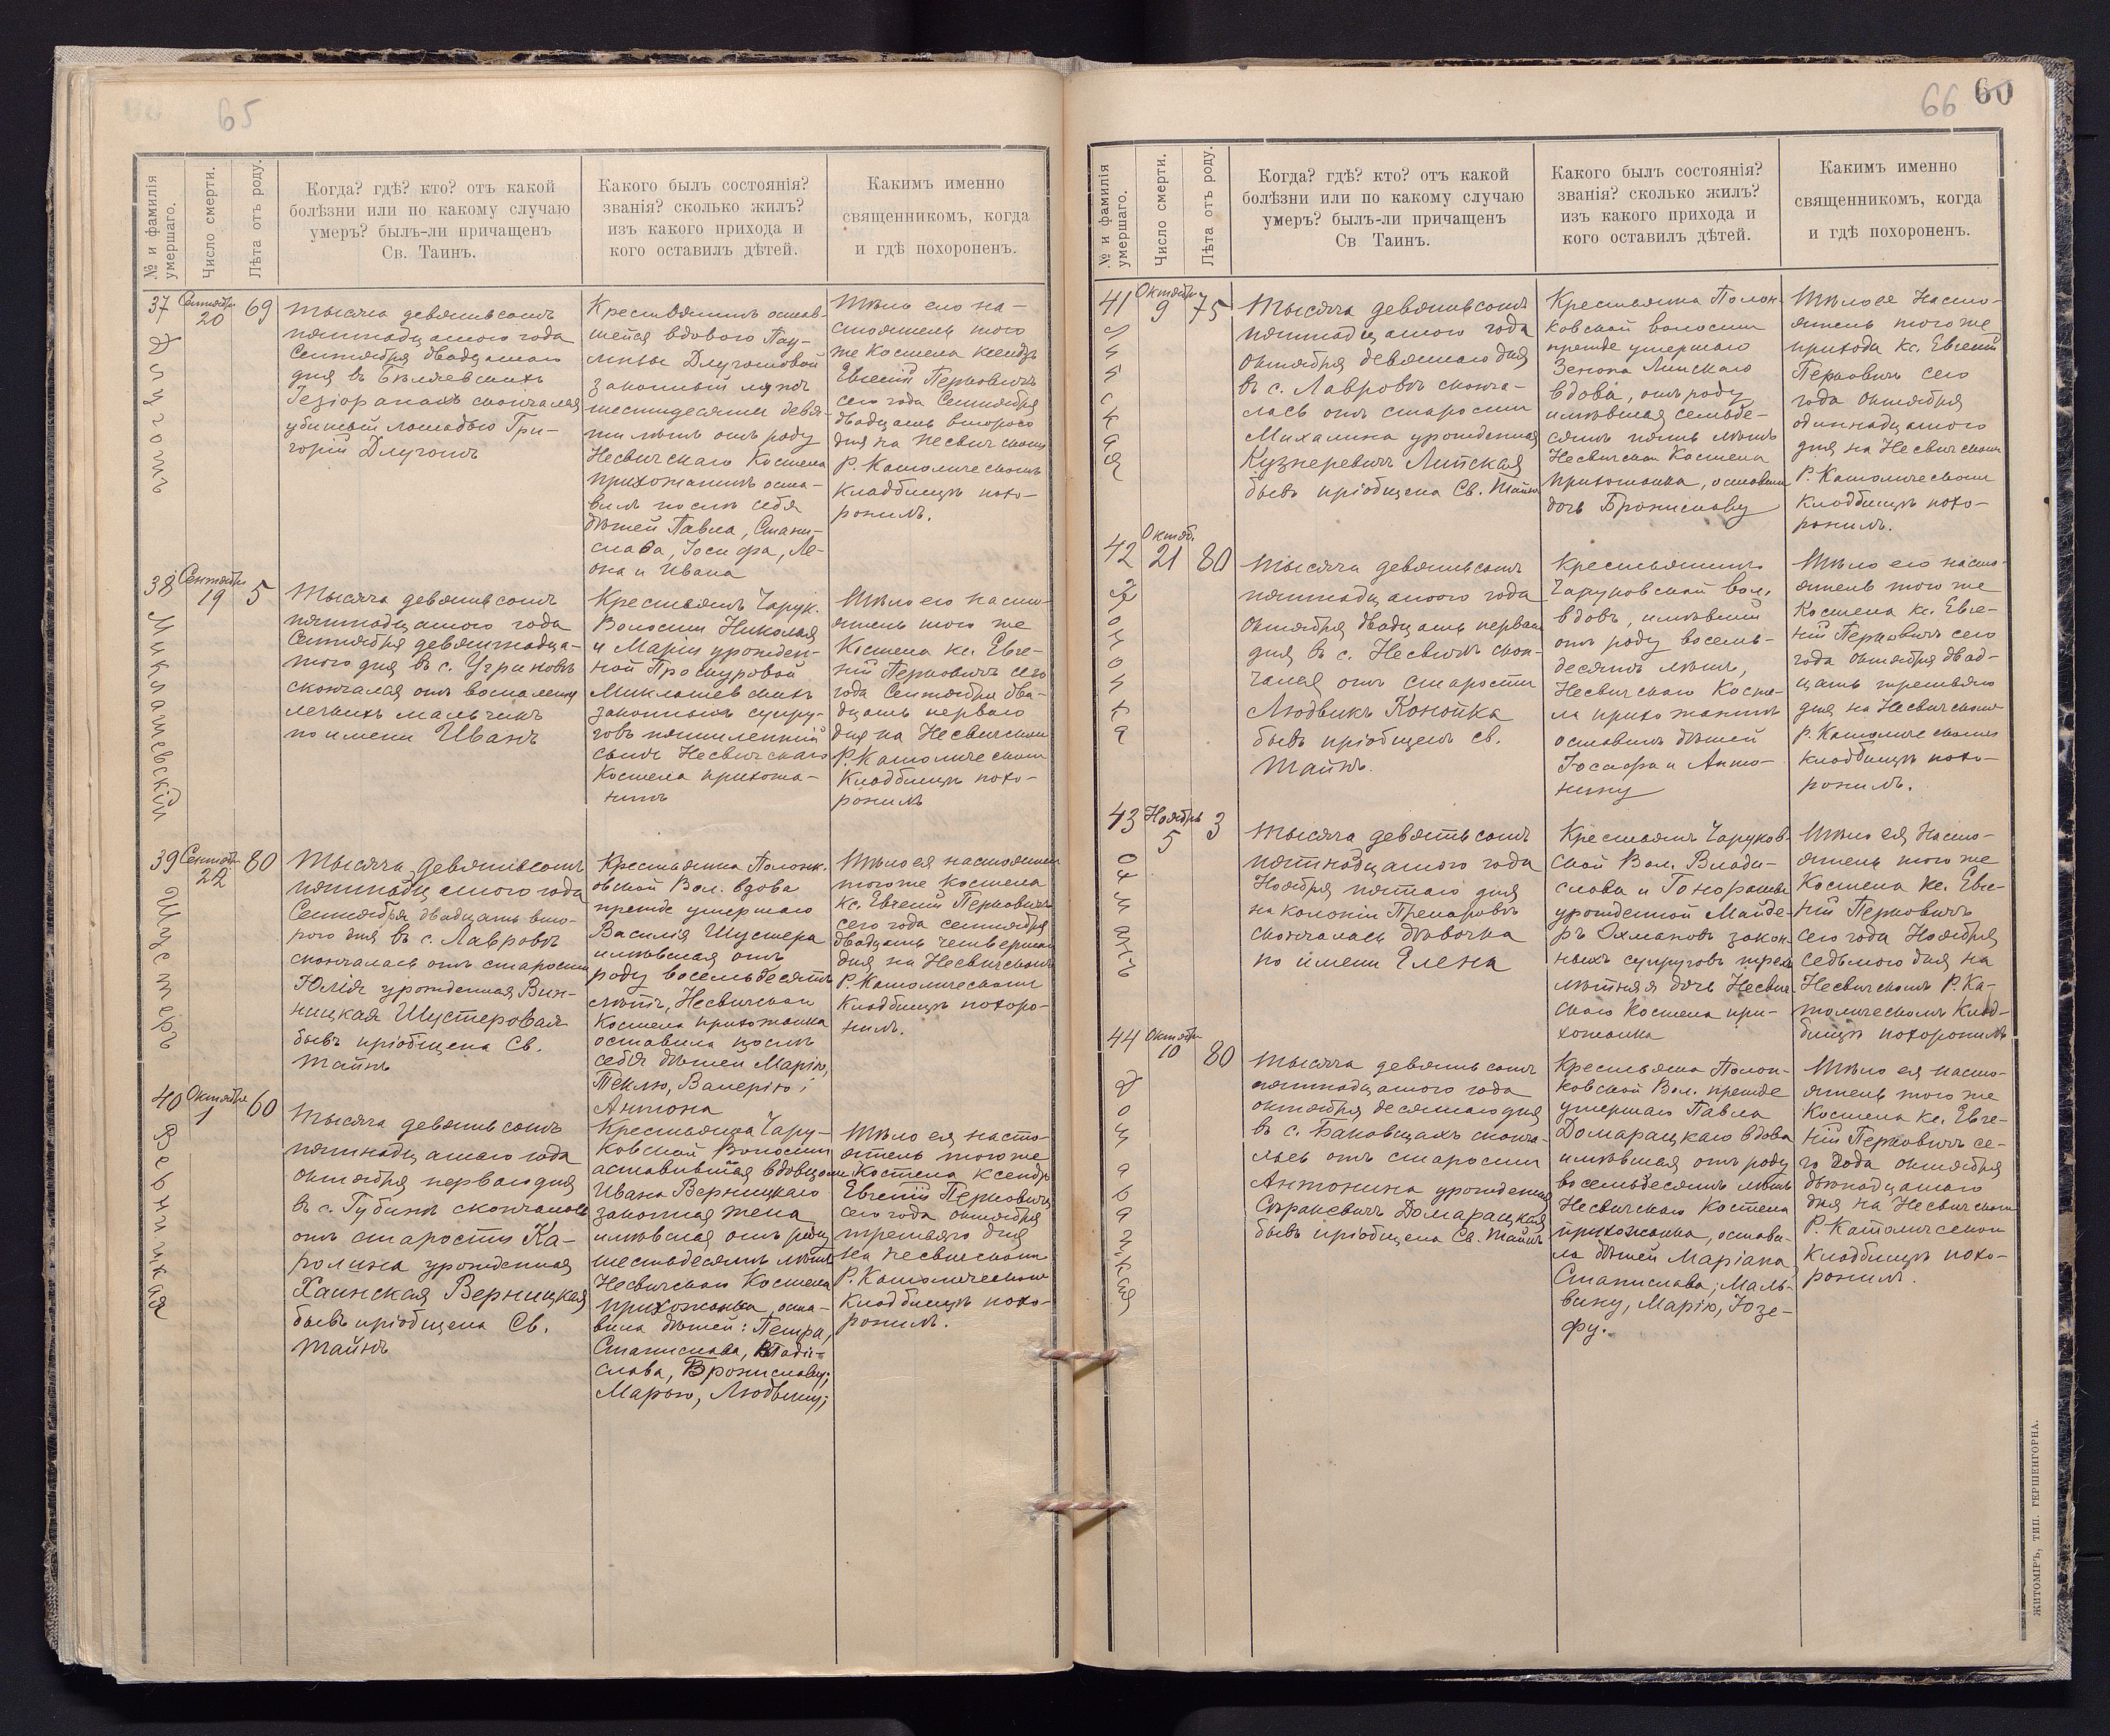 65
№ и фамилія умершаго.
Число смерти.
Лѣта отъ роду.
Когда? гдѣ? кто? отъ какой
болѣзни или по какому случаю
умеръ? былъ-ли причащенъ
Св. Таинъ.
Какого былъ состоянія?
званія? сколько жилъ?
изъ какого прихода и
кого оставилъ дѣтей.
Какимъ именно
священникомъ, когда
и гдѣ похороненъ.
37
Длугошъ
Сентября
20
69
Тысяча девятьсотъ
пятнадцатого года
Сентября двадцатаго
дня въ Бѣляевскихъ
Іезіоранахъ скончался
убитый лошадью Гри-
горій Длугошъ
Крестьянинъ остав-
шейся вдового Пау-
лины Длугошовой
законный мужъ
шестидесяти девя-
ти лѣтъ отъ роду
Несвичскаго Костела
прихожанинъ оста-
вилъ послѣ себя
дѣтей Павла, Стани-
слава, Іосифа, Ле-
она и Ивана
Тѣло его на-
стоятель того
же Костела ксендзъ
Евгеній Перковичъ
сего года Сентября
двадцать второго
дня на Несвичскомъ
Р. Католическомъ
Кладбищѣ похо-
ронилъ.
38
Миклашевскій
Сентября
19
5
Тысяча девятьсотъ
пятнадцатого года
Сентября девятнадца-
того дня въ с. Угриновѣ
скончался отъ воспаленія
легкихъ мальчикъ
по имени Иванъ
Крестьянъ Чарук.
Волости Николая
и Маріи урожден-
ной Прокуровой
Миклашевскихъ
законныхъ супру-
говъ пятилетній
сынъ Несвичскаго
Костела прихожа-
нинъ
Тѣло его насто-
ятель того же
Костела кс. Евге-
ній Перковичъ сего
года Сентября два-
дцать перваго
дня на Несвичскомъ
Р. Католическомъ
Кладбищѣ похо-
ронилъ
39
Шустеръ
Сентября
22
80
Тысяча девятьсотъ
пятнадцатого года
Сентября двадцать вто-
рого дня въ с. Лавровѣ
скончалась отъ старости
Юлія урожденная Вин-
ницкая Шустеровая
бывъ пріобщена Св.
Тайнъ
Крестьянка Полонк.
овской Вол. вдова
прежде умершаго
Василія Шустера
имѣвшая отъ
роду восемьдесятъ
лѣтъ, Несвичскаго
Костела прихожанка
оставила послѣ
себя дѣтей Марію,
Теклю, Валерію і
Антона
Тѣло ея настоятель
того же костела
кс. Евгеній Перковичъ
сего года сентября
двадцать четвертаго
дня на Несвичскомъ
Р. Католическомъ
Кладбищѣ похоро-
нилъ.
40
Верницкая
Октября
1
60
Тысяча девятьсотъ
пятнадцатаго года
октября перваго дня
въ с. Губинѣ скончалась
отъ старости Ка-
ролина урожденная
Хаинская Верницкая
бывъ пріобщена Св.
Тайнъ
Крестьянка Чару-
ковской Волости
аставившая вдовцомъ
Ивана Верницкаго
законная жена
имѣвшая отъ роду
шестьдесятъ лѣтъ
Несвичскаго Костела
прихожанка, оста-
вила дѣтей: Петра,
Станислава, Влади-
слава, Брониславу;
Марою, Людвику;
Тѣло ея насто-
ятель того же
Костела Ксендзъ
Евгеній Перковичъ
сего года октября
третьяго дня
на Несвичскомъ
Р. Католическомъ
Кладбищѣ похо-
ронилъ.
66 60
№ и фамилія умершаго.
Число смерти.
Лѣта отъ роду.
Когда? гдѣ? кто? отъ какой
болѣзни или по какому случаю
умеръ? былъ-ли причащенъ
Св. Таинъ.
Какого былъ состоянія?
званія? сколько жилъ?
изъ какого прихода и
кого оставилъ дѣтей.
Какимъ именно
священникомъ, когда
и гдѣ похороненъ.
41
Октября
9
75
Тысяча девятьсотъ
пятнадцатого года
октября девятаго дня
въ с. Лавровѣ сконча-
лась отъ старости
Михалина урожденная
бывъ пріобщена Св. Тайнъ
Крестьянка Полон-
ковской волости
прежде умершаго
Зенона
вдова, отъ роду
имѣвшая семьде-
сятъ пять лѣтъ
Несвичскаго Костела
прихожанка, оставила
дочь Брониславу
Тѣло ее Насто-
ятель того же
прихода кс. Евгеній
Перковичъ сего
года октября
одиннадцатого
дня на Несвичскомъ
Р. Католическомъ
Кладбищѣ похо-
ронилъ.
42
Конопка
Октяб.
21
80
Тысяча девятьсотъ
пятнадцатого года
октября двадцать перваго
дня въ с. Несвичѣ скон-
чался отъ старости
Людвикъ Конопка
бывъ пріобщенъ св.
Тайнъ.
Крестьянинъ
Чаруковской вол.
вдовъ, имѣвшій
отъ роду восемь-
десятъ лѣтъ,
Несвичскаго Косте-
ла прихожанинъ
оставилъ дѣтей
Іосифа и Анто-
нину
Тѣло его насто-
ятель того же
Костела кс. Евге-
ній Перковичъ сего
года октября двад-
цать третьяго
дня на Несвичскомъ
Р. Католическомъ
кладбищѣ похо-
ронилъ.
43
Охманъ
Ноября
5
3
Тысяча девятьсотъ
пятнадцатого года
Ноября пятаго дня
на колоніи
скончалась дѣвочка
по имени Елена
Крестьянъ Чаруков-
ской Вол. Влади-
слава и Гонораты
урожденной Майде-
ръ Охмановъ закон-
ныхъ супруговъ трех
лѣтняя дочь Несвич-
скаго Костела при-
хожанка
Тѣло ея Насто-
ятель того же
Костела кс. Евге-
ній Перковичъ
сего года Ноября
седьмого дня на
Несвичскомъ Р. Ка-
толическомъ Клад-
бищѣ похоронилъ
44
Домарацкая
Октября
10
80
Тысяча девятьсотъ
пятнадцатого года
октября десятаго дня
въ с. Баковцахъ сконча-
лась отъ старости
Антонина урожденная
Домарацкая
бывъ пріобщена Св. Тайнъ
Крестьянка Полон-
ковской Вол. прежде
умершаго Павла
Домарацкаго вдова
имѣвшая отъ роду
восемьдесятъ лѣтъ
Несвичскаго Костела
прихожанка, остави-
ла дѣтей Маріана
Станислава, Маль-
вину, Марію, Юзе-
фу.
Тѣло ея насто-
ятель того же
Костела кс. Евге-
ній Перковичъ се-
го года октября
двѣнадцатаго
дня на Несвичскомъ
Р. Католическом
Кладбищѣ похо-
ронилъ.
ЖИТОМІРЪ, ТИП. ГЕРШЕНГОРНА.